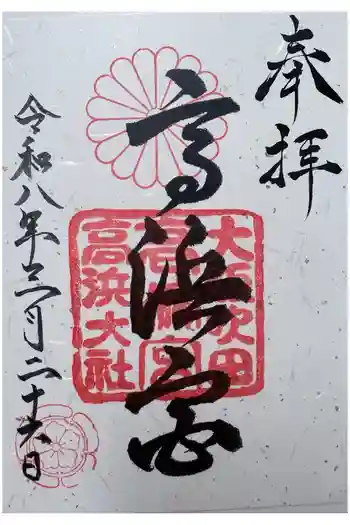 奉拝
高浜宮
大阪吹田
高浜宮
高浜大社
令和八年三月二十六日